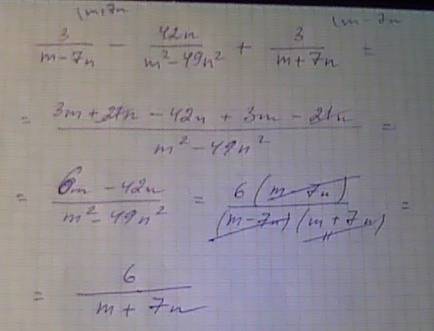 (m+7n (m-7n
3/(m-7n) - 42n/(m²-49n²) + 3/(m+7n) =
= (3m + 21n - 42n + 3m - 21n)/(m²-49n²) =
= (6m - 42n)/(m²-49n²) = 6(m-7n)/((m-7n)(m+7n)) =
= 6/(m+7n)